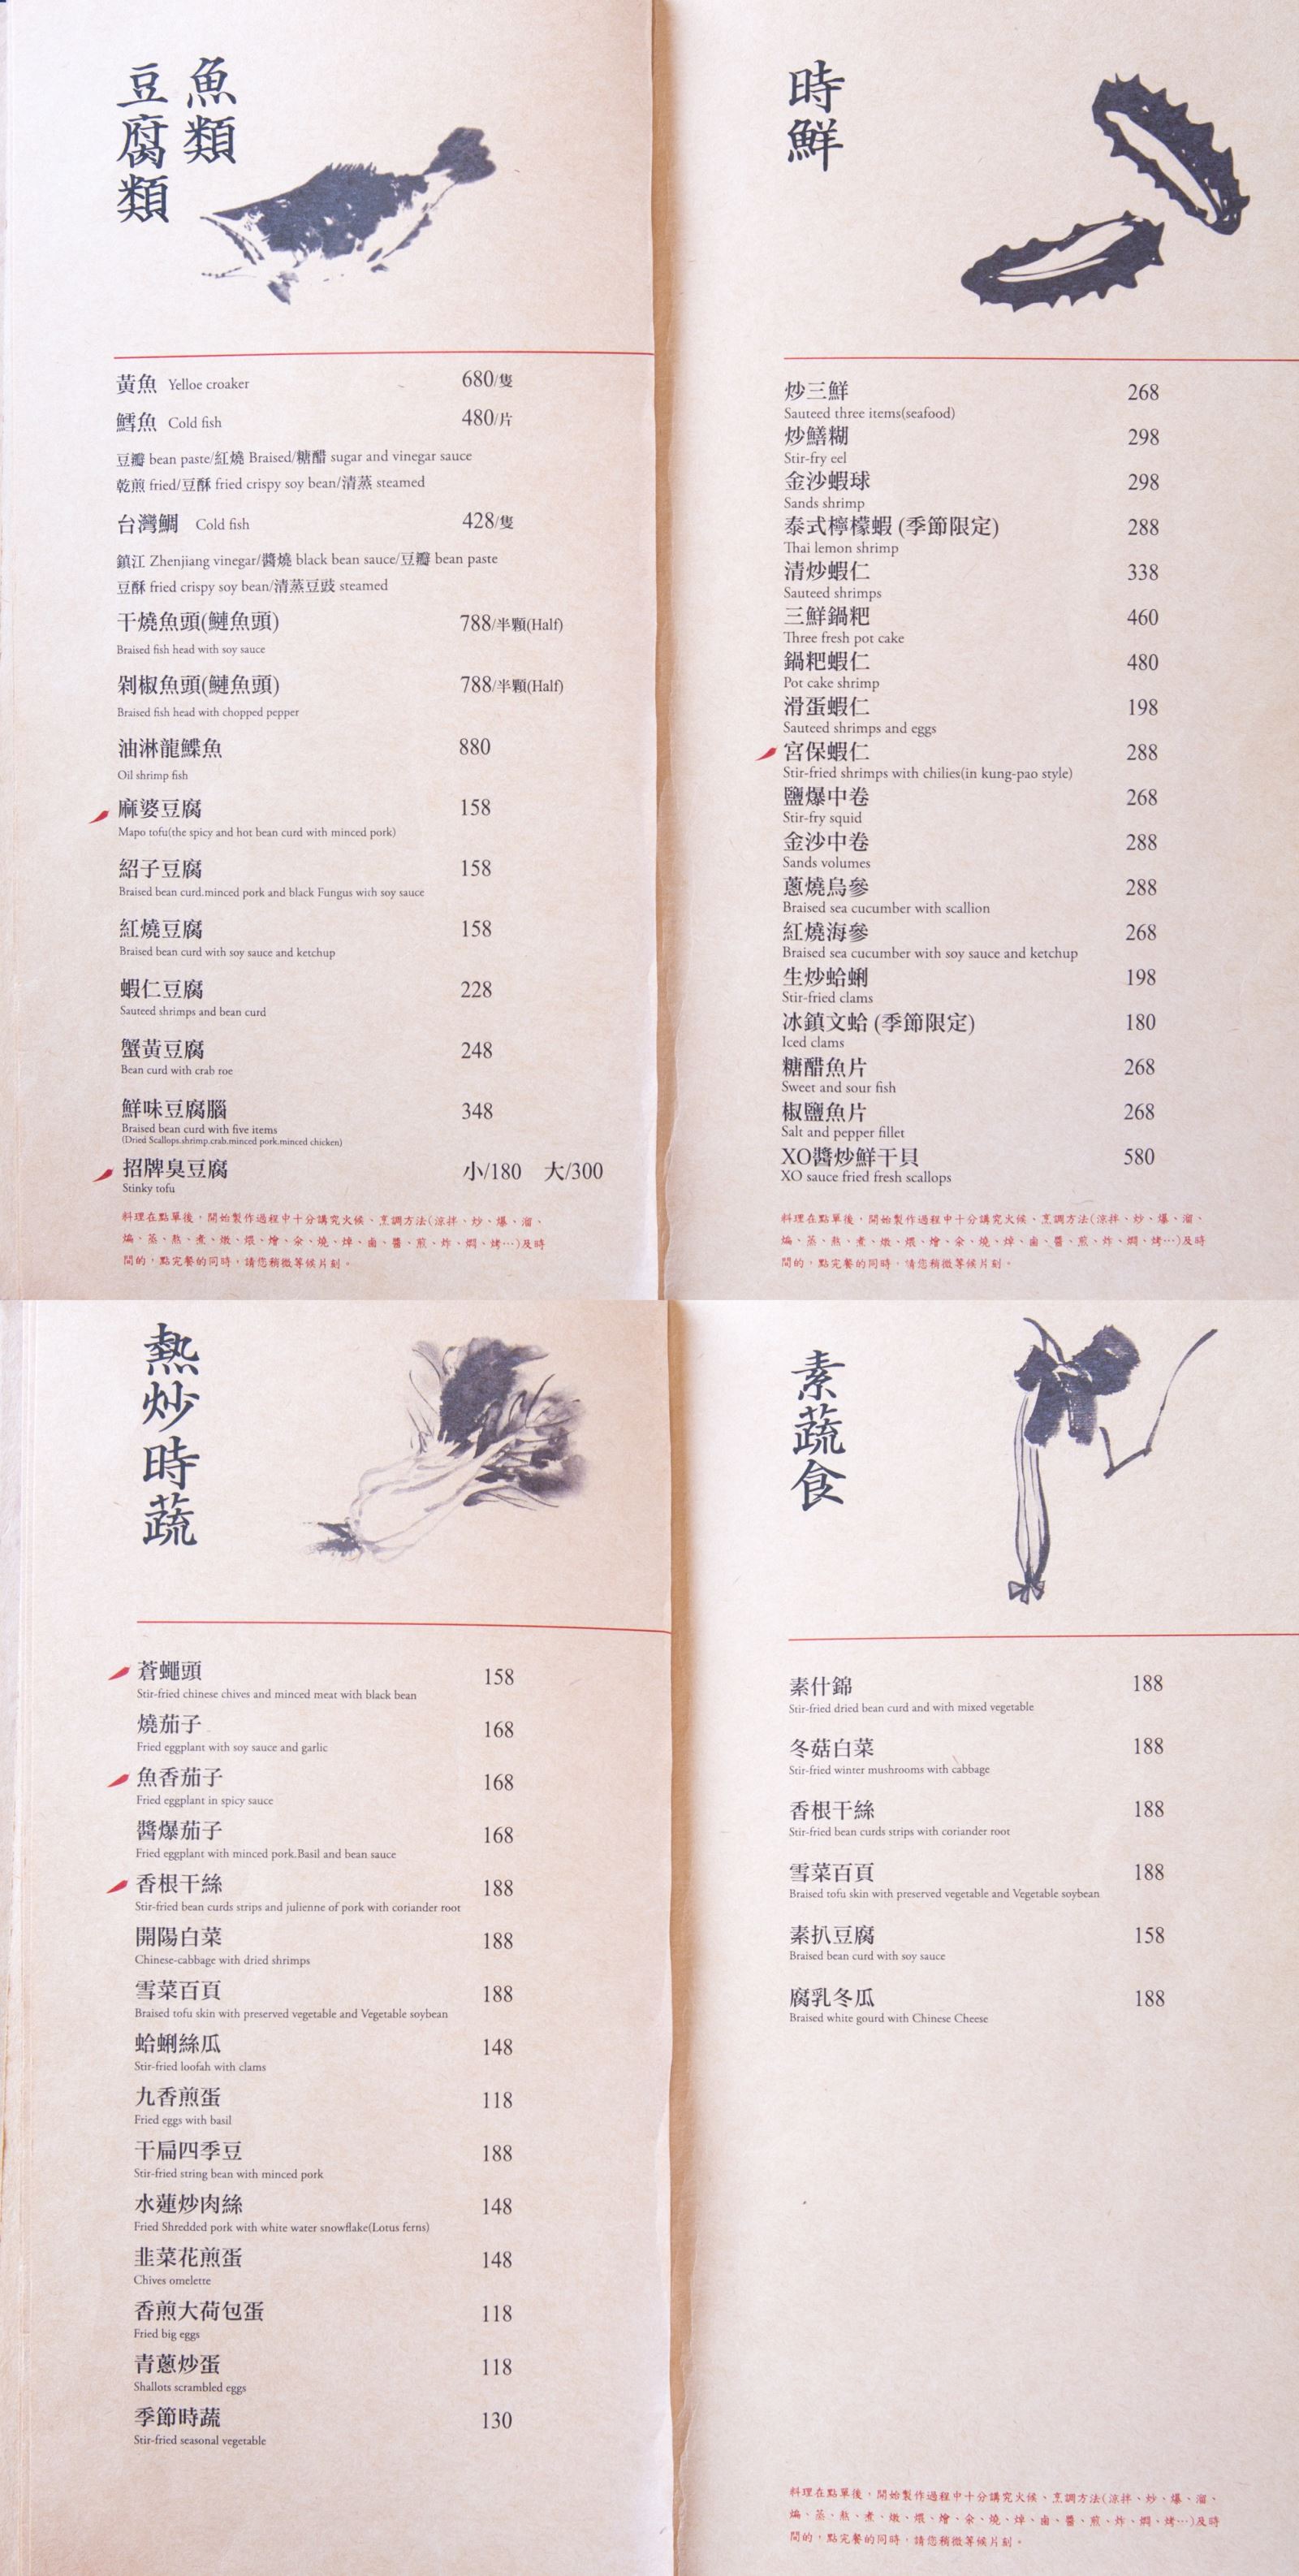 魚類
豆腐類
黃魚 Yelloe croaker 680/隻
鱈魚 Cold fish 480/片
豆瓣 bean paste/紅燒 Braised/糖醋 sugar and vinegar sauce
乾煎 fried/豆酥 fried crispy soy bean/清蒸 steamed
台灣鯛 Cold fish 428/隻
鎮江 Zhenjiang vinegar/醬燒 black bean sauce/豆瓣 bean paste
豆酥 fried crispy soy bean/清蒸豆豉 steamed
干燒魚頭(鰱魚頭) 788/半顆(Half)
Braised fish head with soy sauce
剁椒魚頭(鰱魚頭) 788/半顆(Half)
Braised fish head with chopped pepper
油淋龍鰈魚 880
Oil shrimp fish
麻婆豆腐 158
Mapo tofu(the spicy and hot bean curd with minced pork)
紹子豆腐 158
Braised bean curd.minced pork and black Fungus with soy sauce
紅燒豆腐 158
Braised bean curd with soy sauce and ketchup
蝦仁豆腐 228
Sauteed shrimps and bean curd
蟹黃豆腐 248
Bean curd with crab roe
鮮味豆腐腦 348
Braised bean curd with five items
(Dried Scallops.shrimp.crab.minced pork.minced chicken)
招牌臭豆腐 小/180 大/300
Stinky tofu
料理在點單後，開始製作過程中十分講究火候、烹調方法(涼拌、炒、爆、溜、
煸、蒸、熬、煮、燉、煨、燴、汆、燒、焯、鹵、醬、煎、炸、燜、烤…)及時
間的，點完餐的同時，請您稍微等候片刻。
時鮮
炒三鮮 268
Sauteed three items(seafood)
炒鱔糊 298
Stir-fry eel
金沙蝦球 298
Sands shrimp
泰式檸檬蝦 (季節限定) 288
Thai lemon shrimp
清炒蝦仁 338
Sauteed shrimps
三鮮鍋粑 460
Three fresh pot cake
鍋粑蝦仁 480
Pot cake shrimp
滑蛋蝦仁 198
Sauteed shrimps and eggs
宮保蝦仁 288
Stir-fried shrimps with chilies(in kung-pao style)
鹽爆中卷 268
Stir-fry squid
金沙中卷 288
Sands volumes
蔥燒烏參 288
Braised sea cucumber with scallion
紅燒海參 268
Braised sea cucumber with soy sauce and ketchup
生炒蛤蜊 198
Stir-fried clams
冰鎮文蛤 (季節限定) 180
Iced clams
糖醋魚片 268
Sweet and sour fish
椒鹽魚片 268
Salt and pepper fillet
XO醬炒鮮干貝 580
XO sauce fried fresh scallops
料理在點單後，開始製作過程中十分講究火候、烹調方法(涼拌、炒、爆、溜、
煸、蒸、熬、煮、燉、煨、燴、汆、燒、焯、鹵、醬、煎、炸、燜、烤…)及時
間的，點完餐的同時，請您稍微等候片刻。
熱炒時蔬
蒼蠅頭 158
Stir-fried chinese chives and minced meat with black bean
燒茄子 168
Fried eggplant with soy sauce and garlic
魚香茄子 168
Fried eggplant in spicy sauce
醬爆茄子 168
Fried eggplant with minced pork.Basil and bean sauce
香根干絲 188
Stir-fried bean curds strips and julienne of pork with coriander root
開陽白菜 188
Chinese-cabbage with dried shrimps
雪菜百頁 188
Braised tofu skin with preserved vegetable and Vegetable soybean
蛤蜊絲瓜 148
Stir-fried loofah with clams
九香煎蛋 118
Fried eggs with basil
干扁四季豆 188
Stir-fried string bean with minced pork
水蓮炒肉絲 148
Fried Shredded pork with white water snowflake(Lotus ferns)
韭菜花煎蛋 148
Chives omelette
香煎大荷包蛋 118
Fried big eggs
青蔥炒蛋 118
Shallots scrambled eggs
季節時蔬 130
Stir-fried seasonal vegetable
素蔬食
素什錦 188
Stir-fried dried bean curd and with mixed vegetable
冬菇白菜 188
Stir-fried winter mushrooms with cabbage
香根干絲 188
Stir-fried bean curds strips with coriander root
雪菜百頁 188
Braised tofu skin with preserved vegetable and Vegetable soybean
素扒豆腐 158
Braised bean curd with soy sauce
腐乳冬瓜 188
Braised white gourd with Chinese Cheese
料理在點單後，開始製作過程中十分講究火候、烹調方法(涼拌、炒、爆、溜、
煸、蒸、熬、煮、燉、煨、燴、汆、燒、焯、鹵、醬、煎、炸、燜、烤…)及時
間的，點完餐的同時，請您稍微等候片刻。